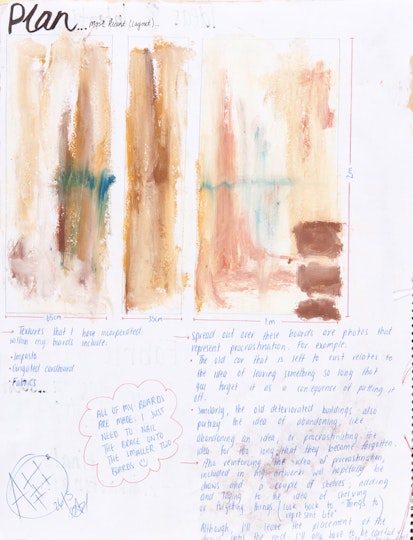 Plan... Most Recent (Layout)
2m
65cm
35cm
1m
→ Textures that I have incorporated
within my boards include:
• Impasto
• Corrugated cardboard
• Fabrics
ALL OF MY BOARDS
ARE MADE. I JUST
NEED TO NAIL
THE BRACE ONTO
THE SMALLER TWO
BOARDS ☺
→ Spread out over these boards are photos that
represent procrastination. For example:
• The old car that is left to rust relates to
the idea of leaving something so long that
you forget it as a consequence of putting it
off.
• Similarly, the old deteriorated buildings also
portray the idea of abandoning, like
abandoning an idea, or procrastinating the
idea for so long that they become forgotten.
→ Also reinforcing the idea of procrastination,
included in my artwork will hopefully be
draws and a couple of shelves, adding
and to the idea of shelving
or forgetting things (look back to "Things to
represent late"
Although, I'll leave the placement of the
draws until the end, I'll also have to be careful